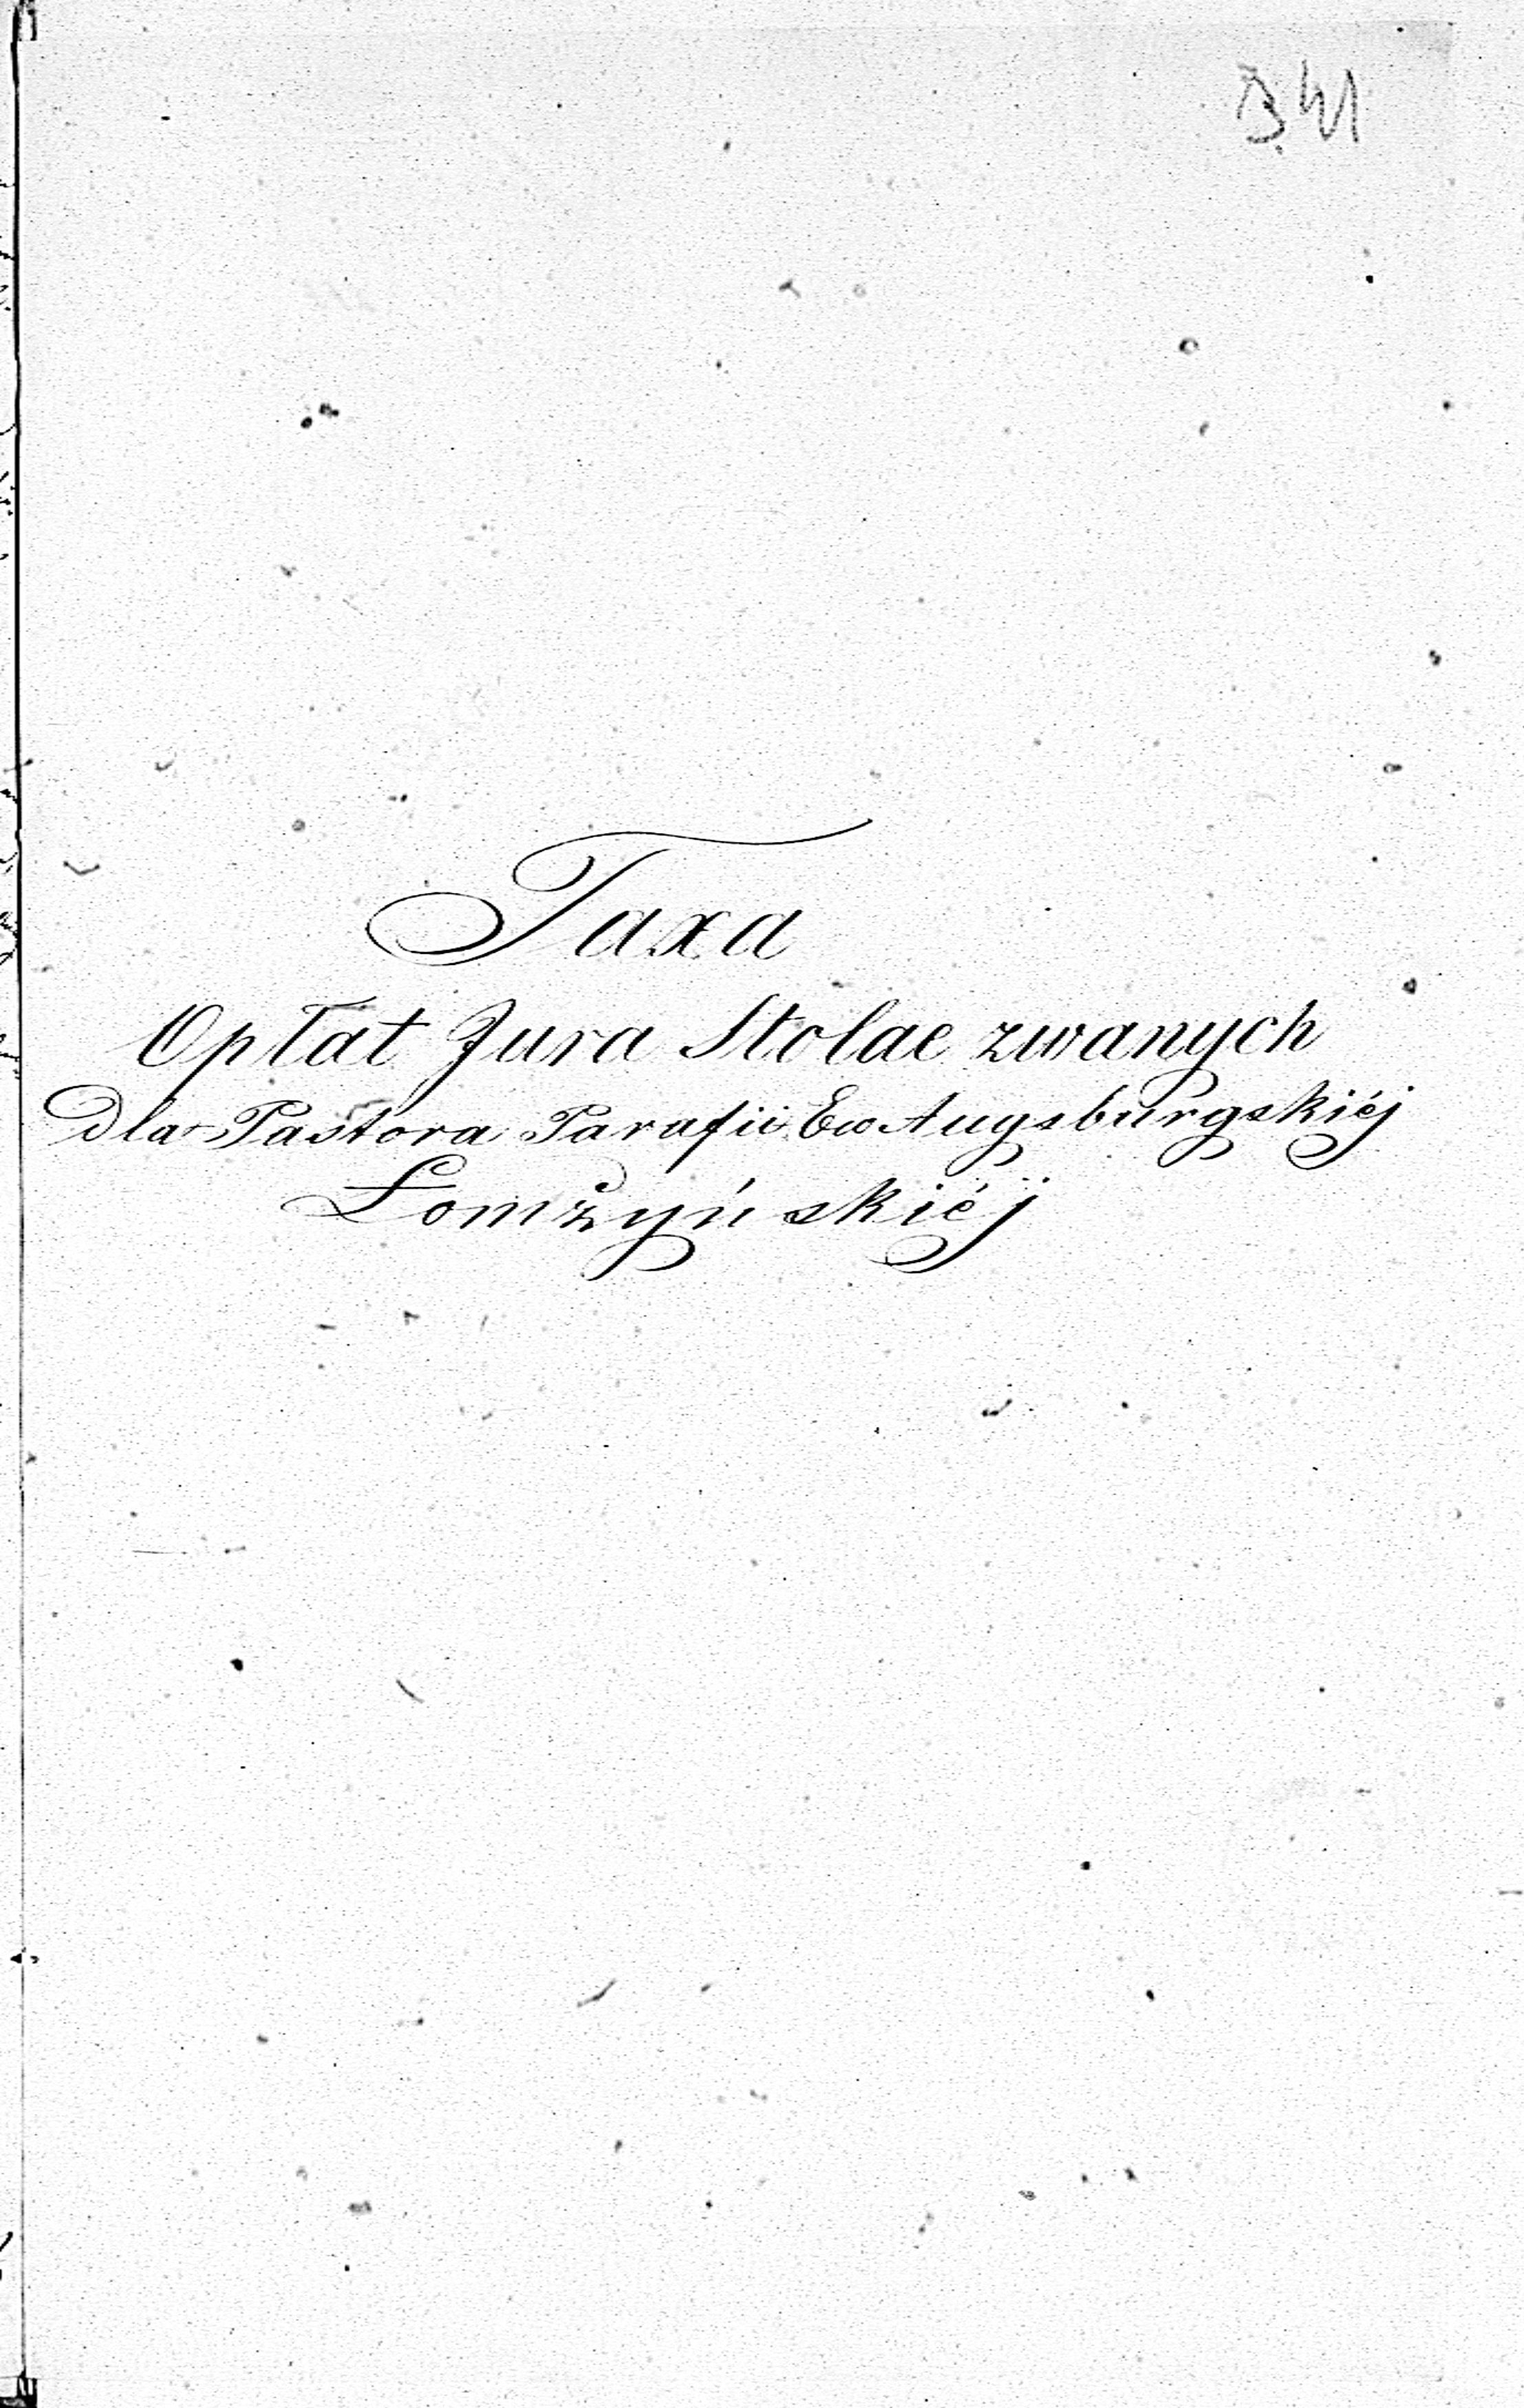 341
Taxa
Opłat Jura Stolae zwanych
Dla Pastora Parafii Ew Augsburgskiéj
Łomżyńskiéj